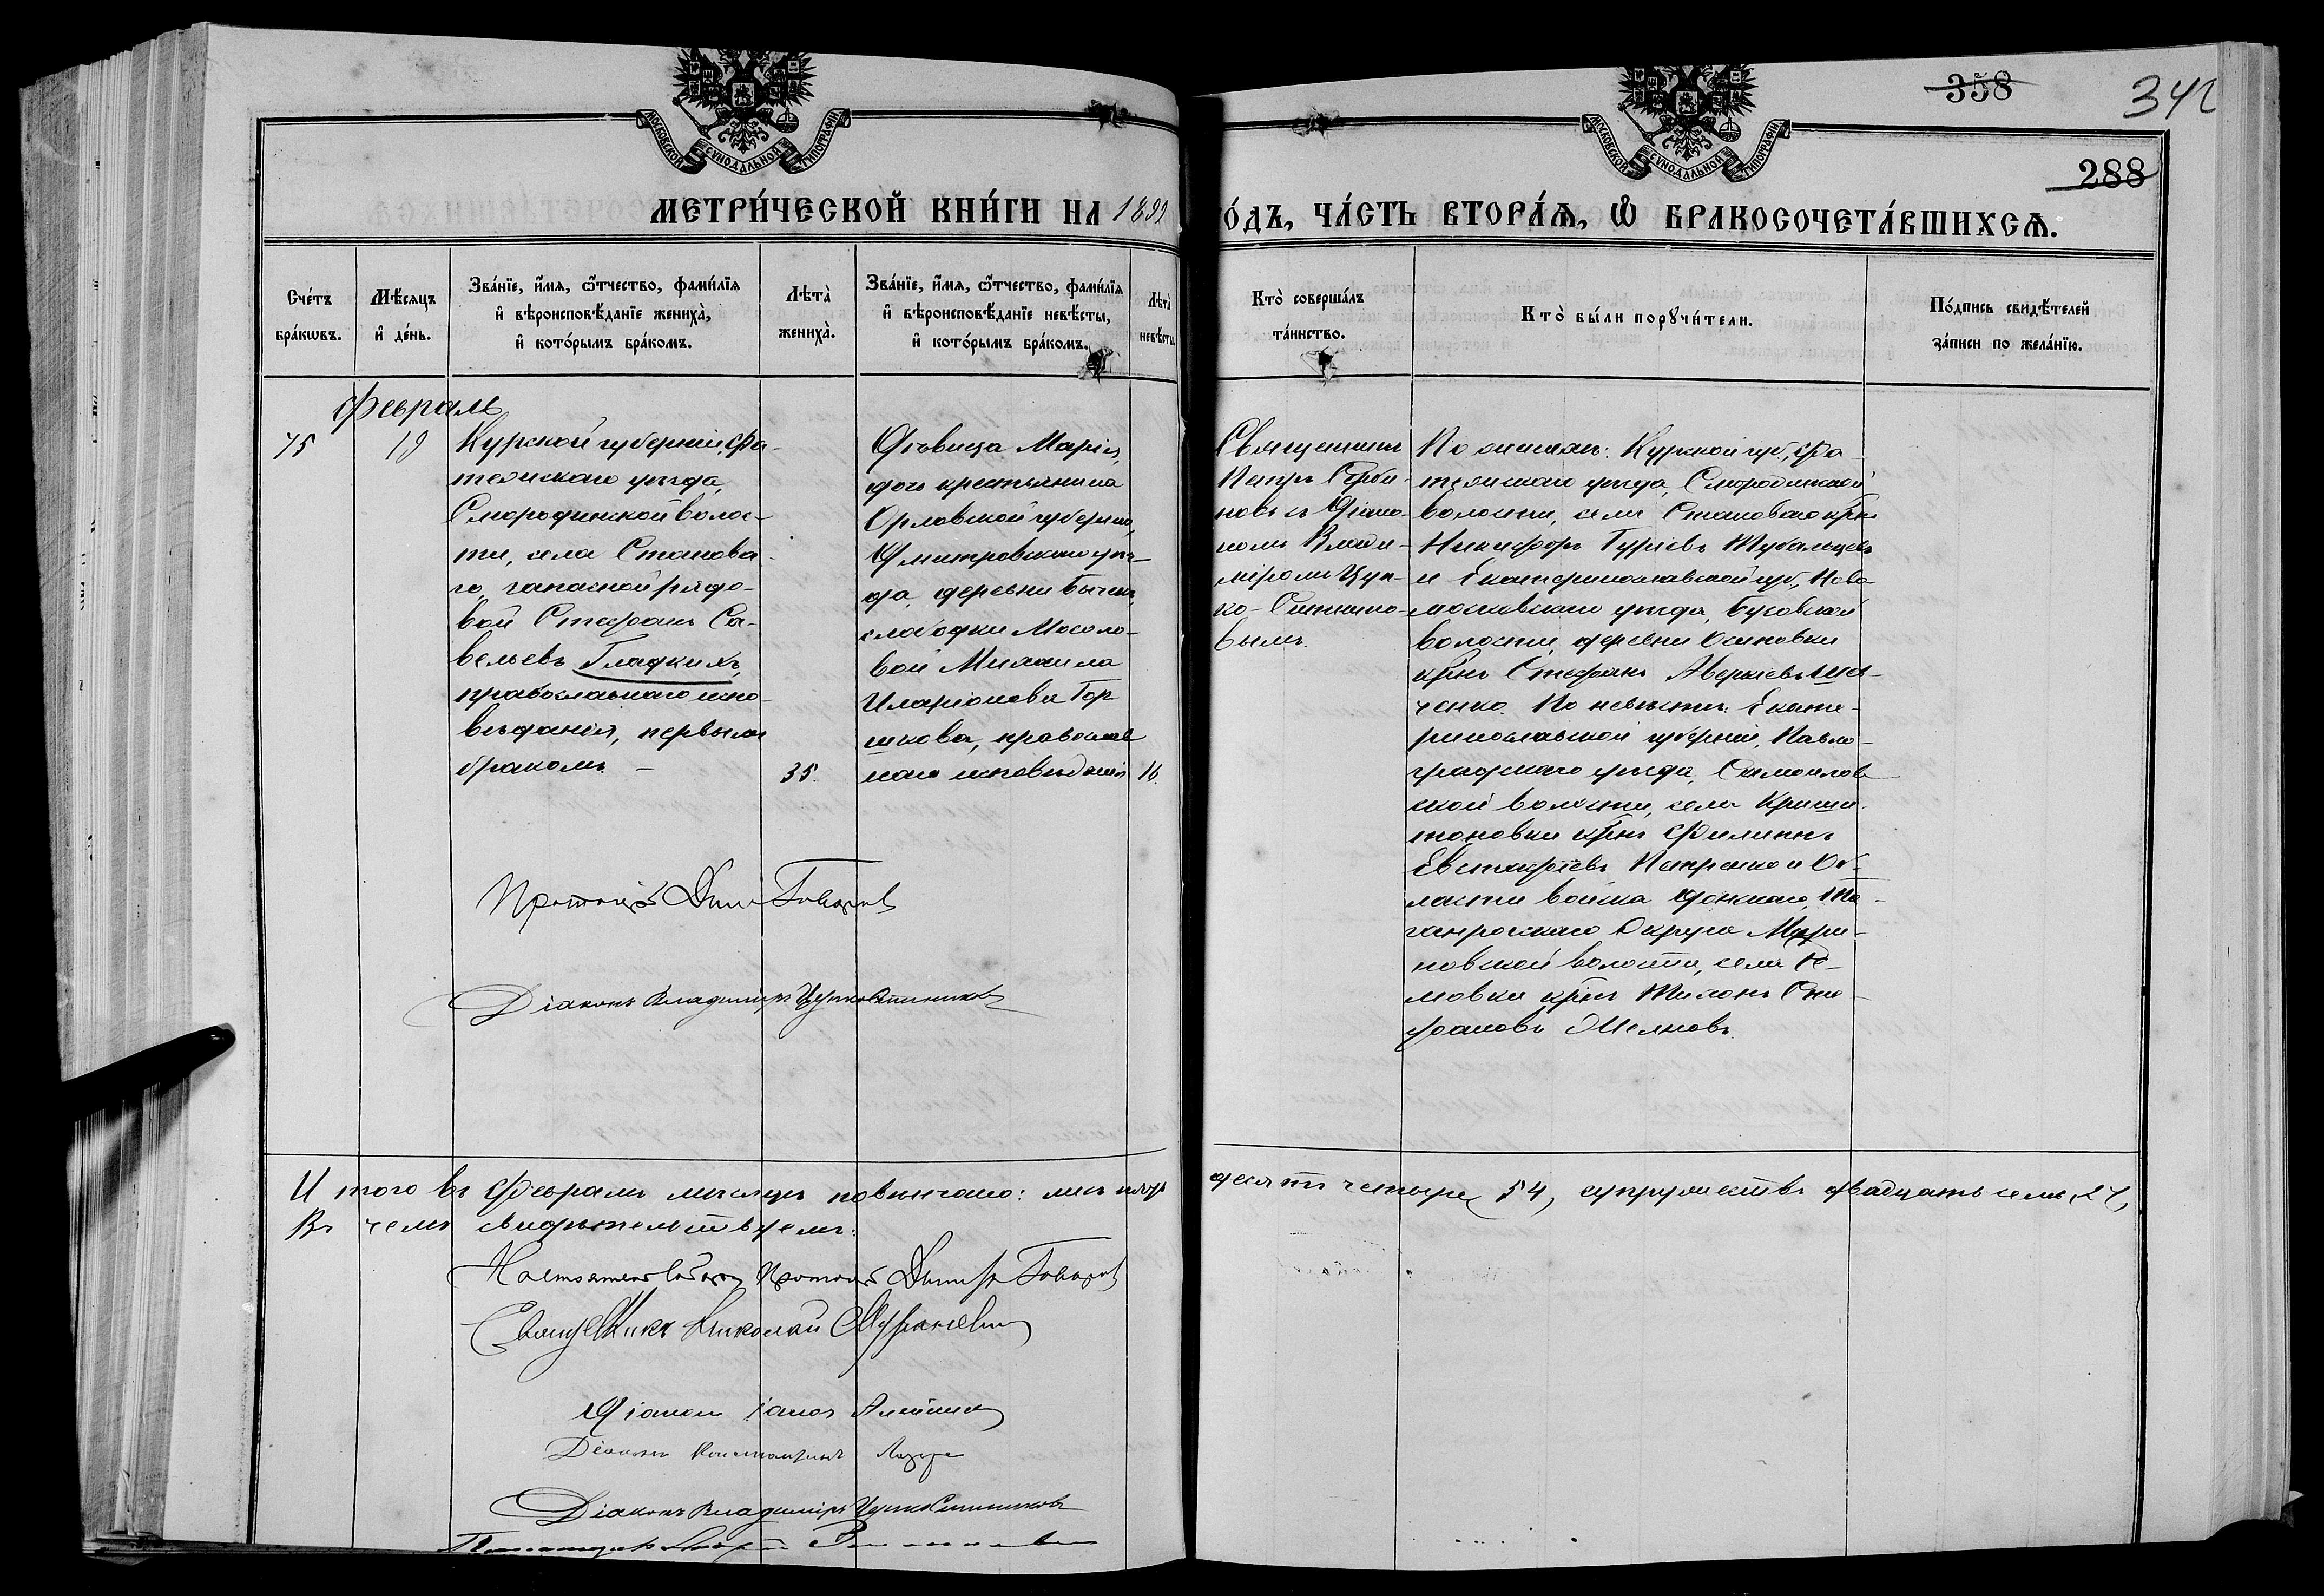 МОСКОВСКОЙ СѴНОДАЛЬНОЙ ТИПОГРАФІИ
МОСКОВСКОЙ СѴНОДАЛЬНОЙ ТИПОГРАФІИ
358
342
288
МЕТРИ́ЧЕСКОЙ КНИ́ГИ НА 1899
О́ДЪ, ЧА́СТЬ ВТОРА́Ѧ, Ѡ҆ БРАКОСОЧЕТА́ВШИХСѦ.
Сче́тъ бра́кѡвъ.
Мѣ́сяцъ и҆ де́нь.
Зва́нїе, и҆́мя, ѻ҆́тчество, фами́лїя
и҆ вѣроисповѣ́данїе жениха̀,
и҆ кото́рымъ бра́комъ.
Лѣта̀ жениха̀.
Зва́нїе, и҆́мя, ѻ҆́тчество, фами́лїя
и҆ вѣроисповѣ́данїе невѣ́сты,
и҆ кото́рымъ бра́комъ.
Лѣта̀ невѣ́сты
Кто̀ соверша́лъ
та́инство.
Кто̀ бы́ли порꙋчи́тели.
По́дпись свидѣ́телей
за́писи по жела́нїю.
Февраль
19
Курской губерніи, Фа-
тежскаго уѣзда,
Смородинской волос-
ти, села Станова-
го, запасной рядо-
вой Стефанъ Са-
вельевъ Гладкихъ,
православнаго испо-
вѣданія, первымъ
бракомъ. –
35.
Дѣвица Марія,
дочь крестьянина
Орловской губерніи,
Дмитровскаго уѣз-
да, деревни
слободки Мосоло-
вой Михаила
Иларіонова Гор
шкова, православ
наго исповѣданія
16.
Священникъ
Петръ
новъ съ Діако-
номъ Влади-
міромъ Цук-
вымъ.
По женихѣ: Курской губ., Фа
тежскаго уѣзда, Смородинской
волости, села Становаго крн
Никифоръ Гуріевъ
и Екатеринославской губ., Ново
московскаго уѣзда,
волости, деревни Осиповки
крнъ Стефанъ Аверкіевъ Шев-
ченко. По невѣстѣ: Екате-
ринославской губерніи, Павло-
градскаго уѣзда, Самойлов
ской волости, села
крнъ Филиппъ
Евстафіевъ Петренко и Об-
ласти войска Донскаго, Та-
ганрогскаго Округа
новской волости, села
мовки крнъ Тихонъ Сте-
фановъ
Протоіерей Дим Говоровъ
Діаконъ Владиміръ
И того въ Февралѣ мѣсяцѣ повѣнчано: лицъ пять
десятъ четыре 54, супружествъ двадцать семь, 27,
Въ чемъ свидѣтельствуемъ:
Настоятель Собора Протоіер Димитр Говоровъ
Священникъ Николай
Діаконъ
Діаконъ Константинъ
Діаконъ Владиміръ